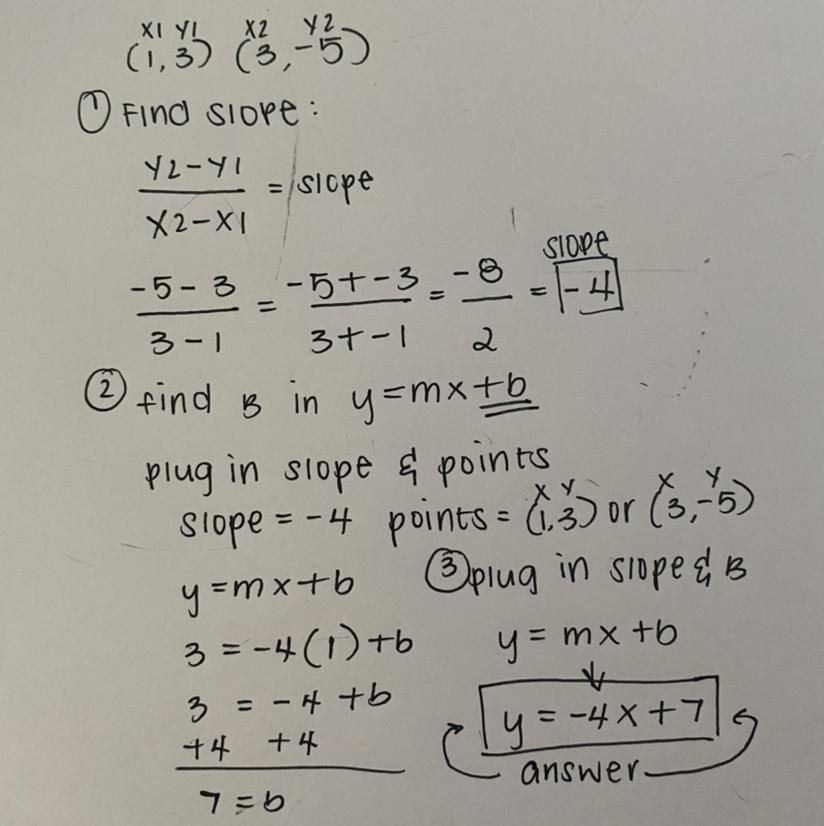 X1 Y1 X2 Y2
(1,3) (3,-5)
① Find slope:
Y2-Y1 / X2-X1 = slope
slope
-5-3 / 3-1 = -5+-3 / 3+-1 = -8 / 2 = -4
② find B in y=mx+b
plug in slope & points
X Y X Y
slope = -4 points = (1,3) or (3,-5)
y=mx+b
3 = -4(1)+b
3 = -4 +b
+4 +4
7 = b
③ plug in slope & B
y = mx +b
y = -4x+7
answer